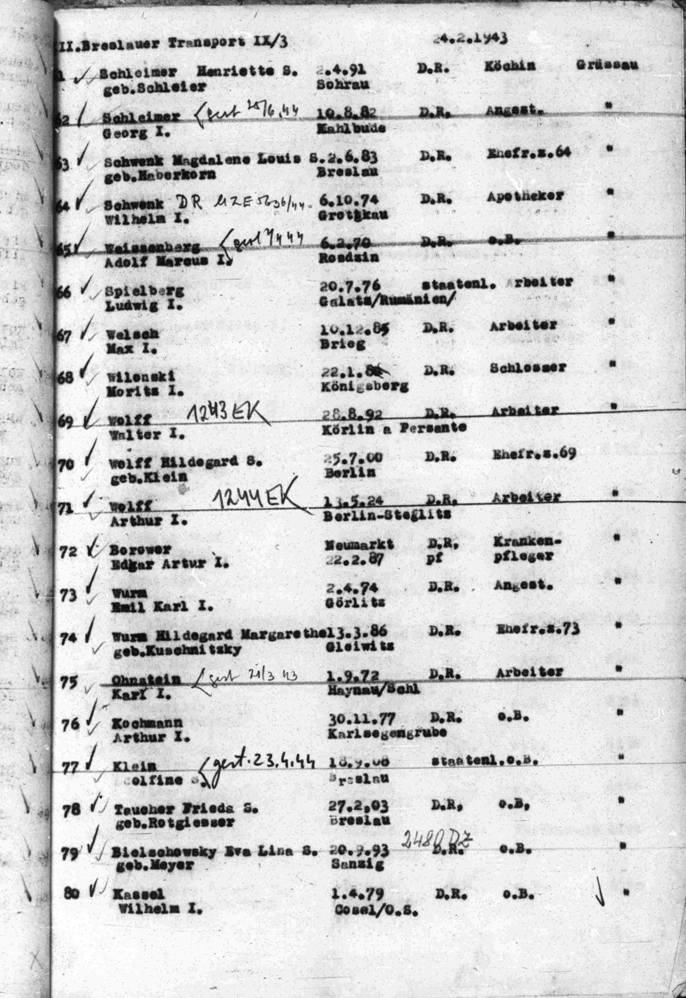 II.Breslauer Transport IX/3 24.2.1943
1 Schleimer Henriette S. 2.4.91 D.R. Köchin Grüssau
geb.Schleier Sohrau
62 Schleimer gest 10.8.82 D.R. Angest. "
Georg I. Kahlbude
63 Schwenk Magdalene Louis S. 2.6.83 D.R. Ehefr.z.64 "
geb.Haberkorn Breslau
64 Schwenk DR 6.10.74 D.R. Apotheker "
Wilhelm I. Grottkau
65 Weissenberg gest 6.2.70 D.R. o.B. "
Adolf Marcus I. Rosdzin
66 Spielberg 20.7.76 staatenl. Arbeiter "
Ludwig I. Galatz/Rumänien/
67 Welsch 10.12.85 D.R. Arbeiter "
Max I. Brieg
68 Wilenski 22.1. D.R. Schlosser "
Moritz I. Königsberg
69 Wolff 1243 EK 28.8.92 D.R. Arbeiter "
Walter I. Körlin a Persante
70 Wolff Hildegard S. 25.7.00 D.R. Ehefr.z.69 "
geb.Klein Berlin
71 Wolff 1244 EK 13.5.24 D.R. Arbeiter "
Arthur I. Berlin-Steglitz
72 Borower Neumarkt D.R. Kranken- "
Edgar Artur I. 22.2.87 pf pfleger
73 Wurm 2.4.74 D.R. Angest. "
Emil Karl I. Görlitz
74 Wurm Hildegard Margarethe 13.3.86 D.R. Ehefr.z.73 "
geb.Kuschnitzky Gleiwitz
75 Ohnstein gest 21/3 43 1.9.72 D.R. Arbeiter "
Karl I. Haynau/Schl
76 Kochmann 30.11.77 D.R. o.B. "
Arthur I. Karlsegengrube
77 Klein gest.23.4.44 18.9.08 staatenl.o.B. "
Breslau
78 Taucher Frieda S. 27.2.03 D.R. o.B. "
geb.Rotgiesser Breslau
79 Bielschowsky Eva Lina S. 20.9.93 D.R. o.B. "
geb.Meyer Sanzig
80 Kassel 1.4.79 D.R. o.B. "
Wilhelm I. Cosel/O.S.